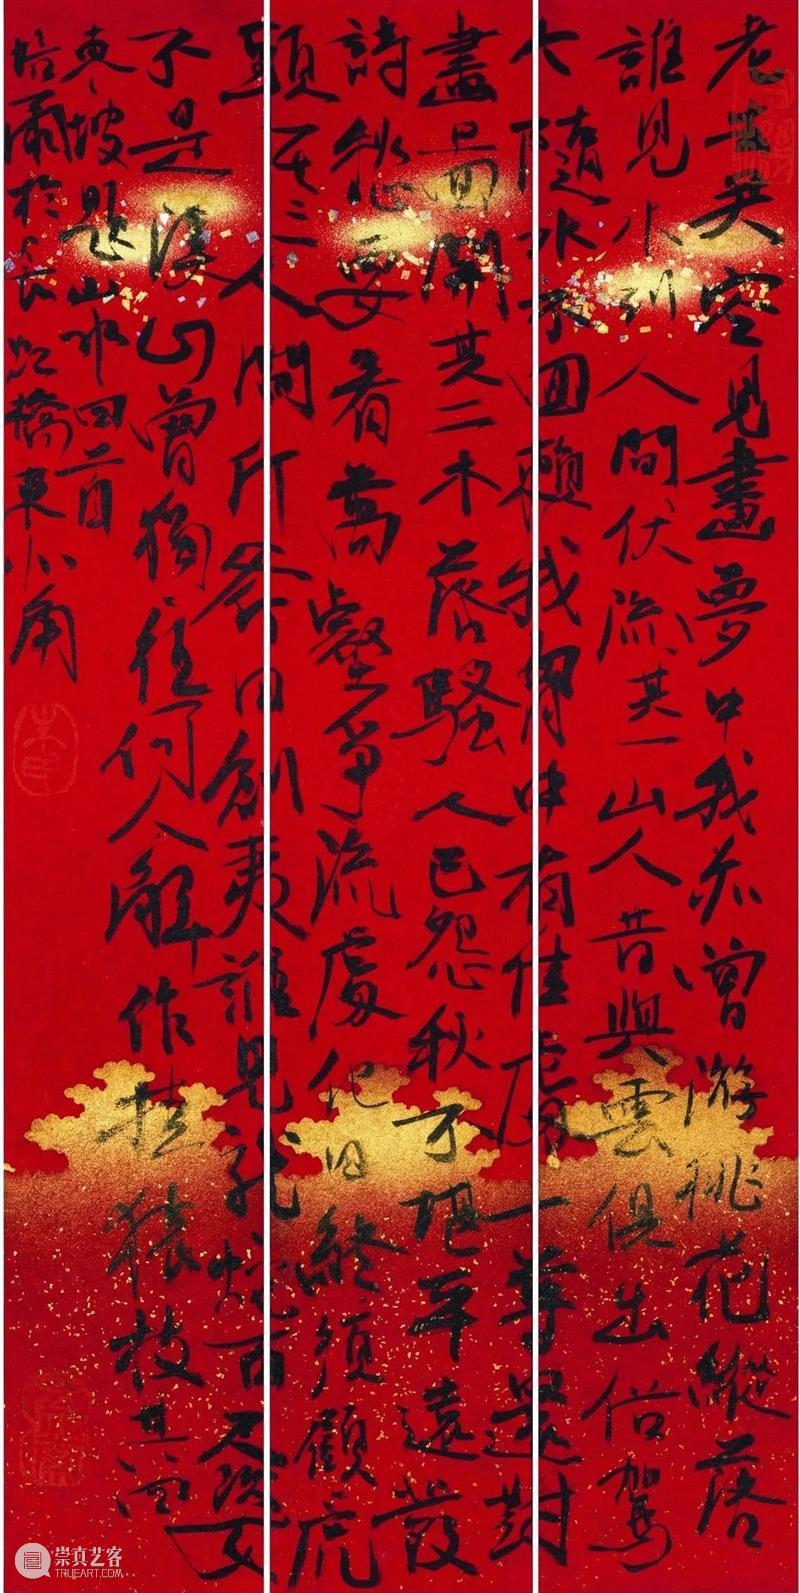 老去君空見畫夢中我亦曾游桃花縱落
誰見水到人間伏流其一山人昔與雲俱出俗駕
今隨水不回賴我胸中有佳處一尊還對
畫圖開其二木落騷人已怨秋不堪平遠發
詩愁要看萬壑爭流處他日終須顧虎
頭其三人間斤斧日創夷誰見龍蛇百尺姿
不是溪山曾獨往何人解作挂猿枝其四
東坡題山水四首
於長虹橋東小角
崇真艺客
TRUEART.COM